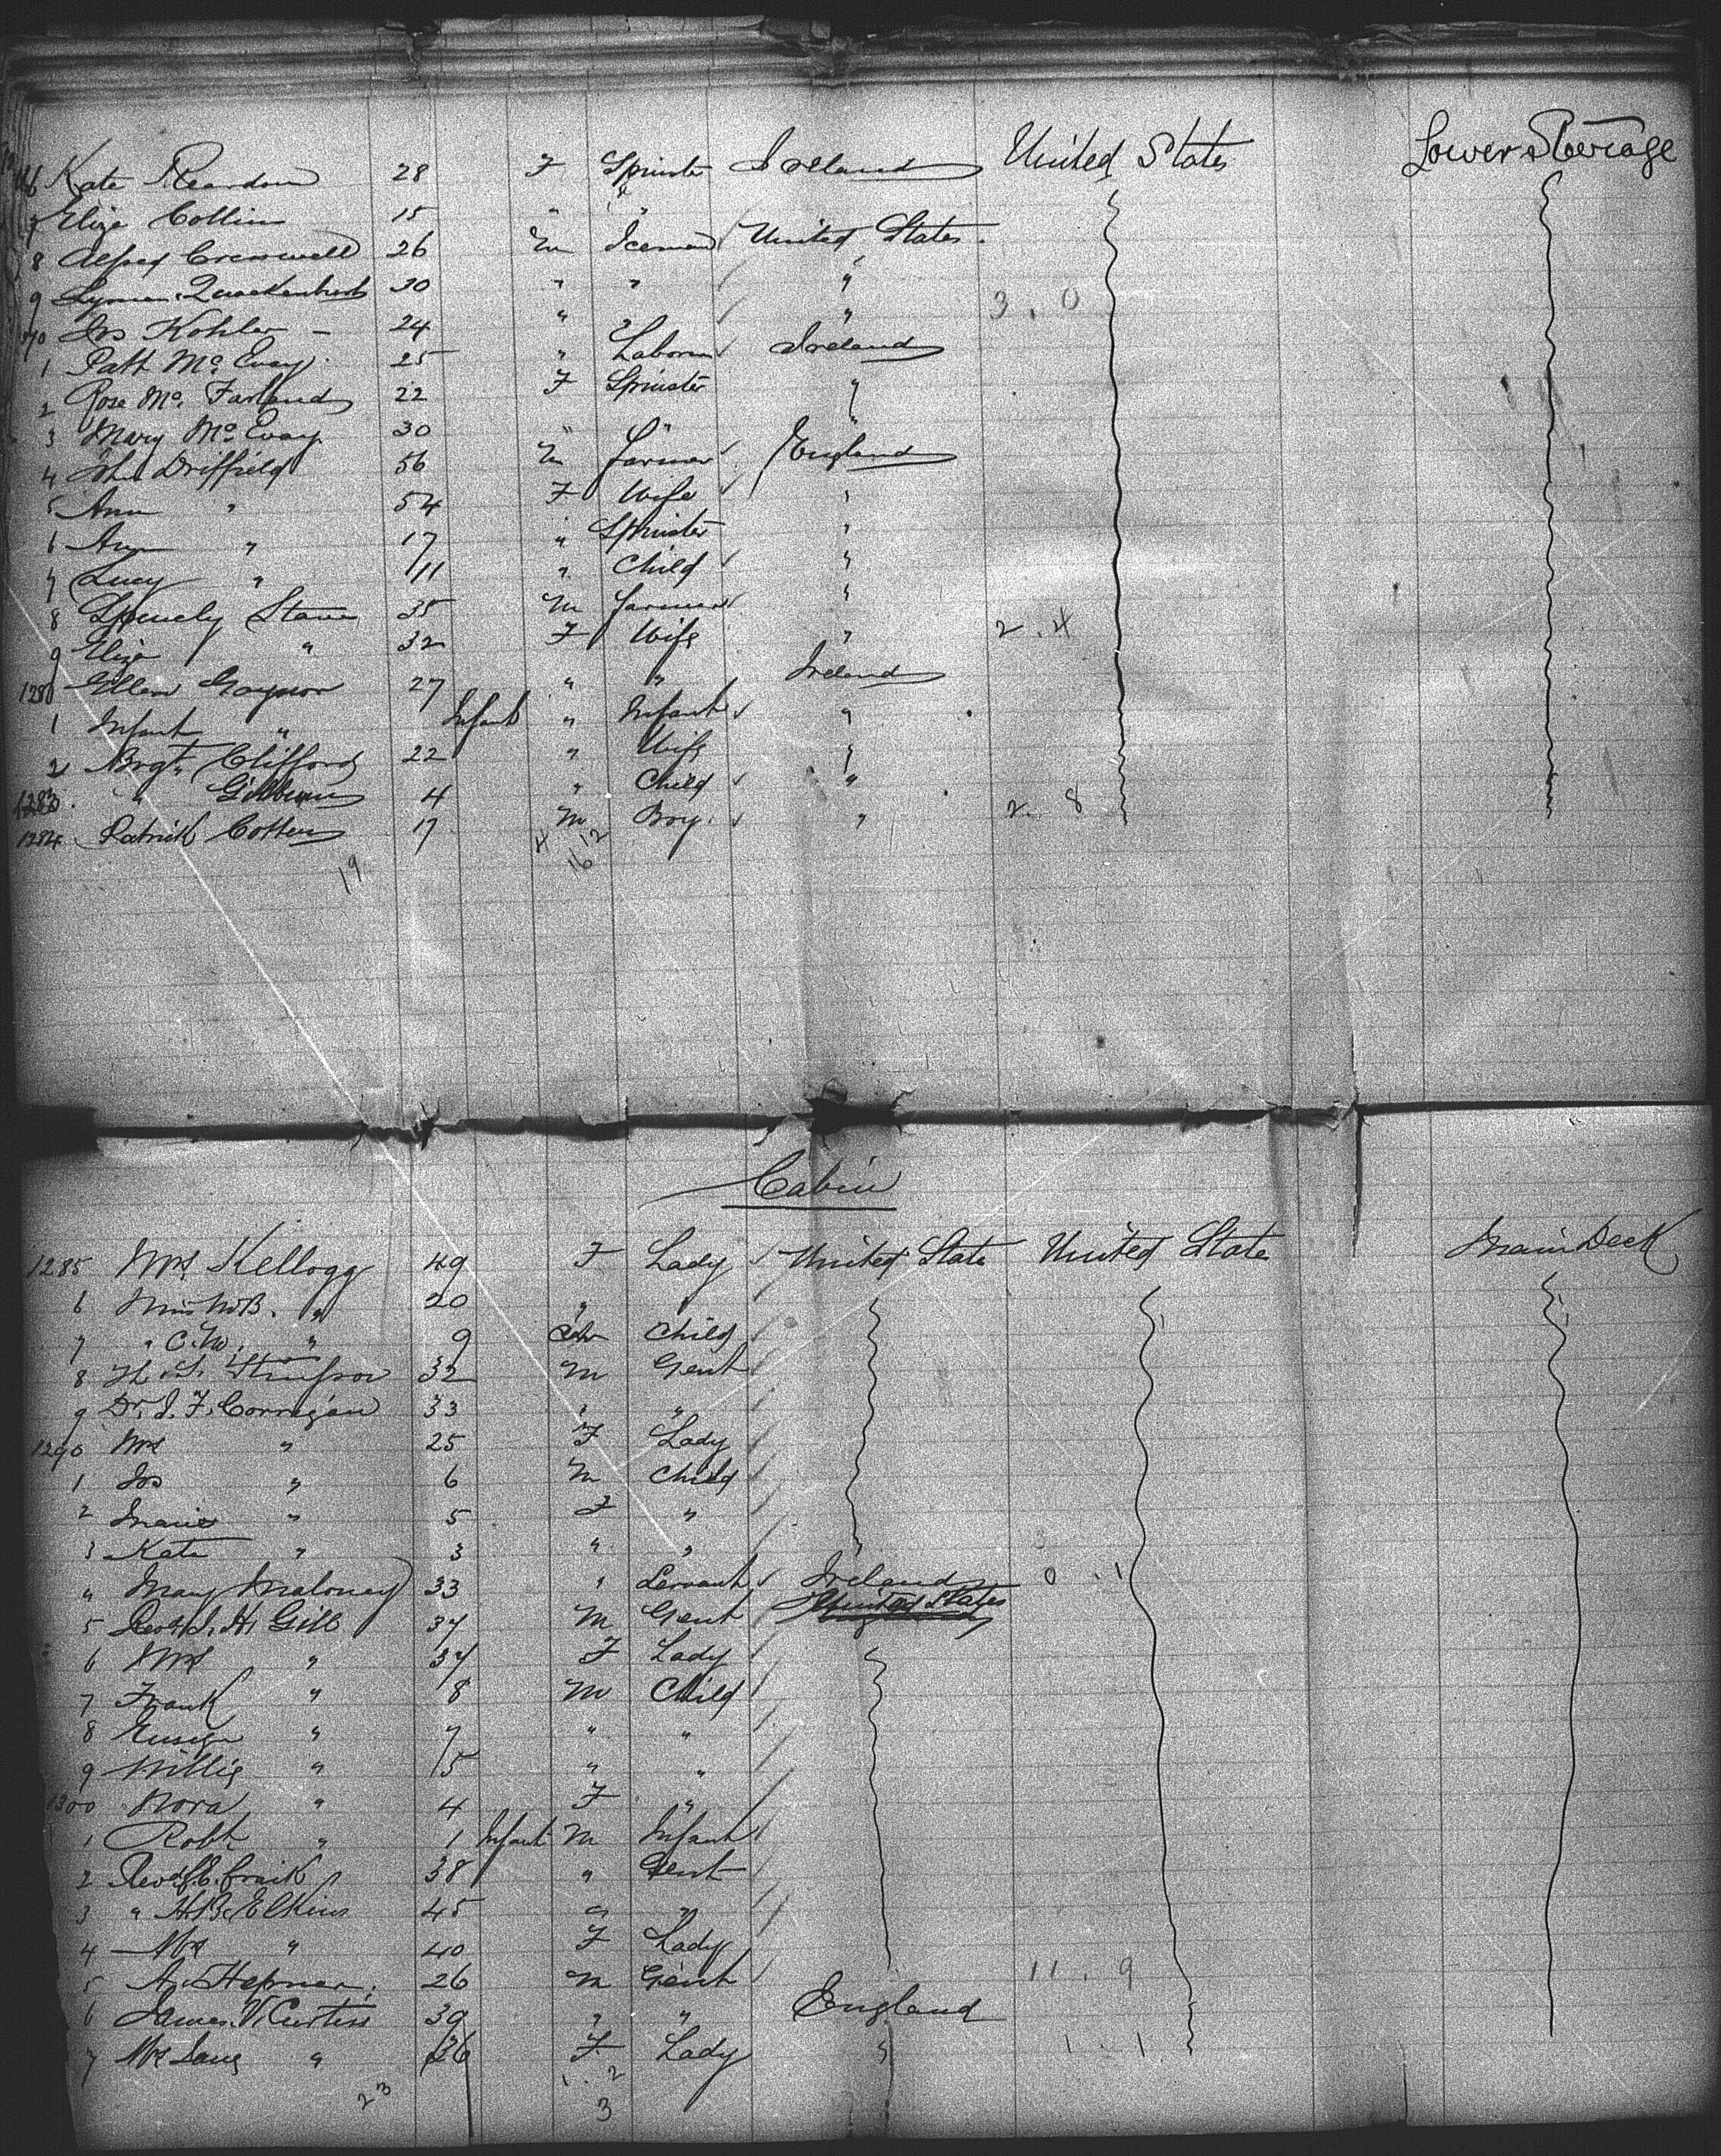 Kate Reardon 28 F Spinster Ireland United States Lower Steerage
7 Eliza Collins 15 " "
8 Alfred Cresswell 26 M Iceman United States.
9 Lyman Quackenbush 30 " " "
Jos Kohler - 24 " " " 3 . 0
1 Patt McEvoy 25 " Laborer Ireland
2 Rose Mc Farland 22 F Spinster "
3 Mary McEvoy 30 " " "
4 John Driffield 56 M farmer England
5 Ann " 54 F Wife "
6 Ann " 17 " Spinster "
7 Lucy " 11 " Child "
8 Stave 35 M farmer "
9 Eliza " 32 F Wife " 2 . 4
1280 Ellen Gaynor 27 " " Ireland
1 Infant " Infant " Infant "
2 Brgt Clifford 22 " Wife "
1283 " 4 " Child "
1284 Patrick Cotter 17 M Boy. " 2. 8
19 4 12
16
Cabin
1285 Mrs Kellogg 49 F Lady United State United State Main Deck
6 Miss W B. " 20 " "
7 " C. W. " 9 Child
8 32 M Gent
9 Dr. J. F. Corrigan 33 " "
1290 Mrs " 25 F Lady
1 Jos " 6 M Child
2 Marie " 5 F "
3 Kate " 3 " " "
" Mary Maloney 33 " Servant Ireland 0 . 1
5 Revd J. H. Gill 37 M Gent United States
6 Mrs " 34 F Lady
7 Frank " 8 M Child
8 " 7 " "
9 Willie " 5 " "
1300 Nora " 4 F "
1 Robt " 1 Infant M Infant
2 Revd Craik 38 " Gent
3 " H. B. Elkins 45 " "
4 Mrs " 40 F Lady
5 A. Hepner 26 M Gent 11 . 9
6 James V. Curtiss 39 " " England
7 Mrs Jane " 36 F Lady " 1 . 1
23 1 . 2
3